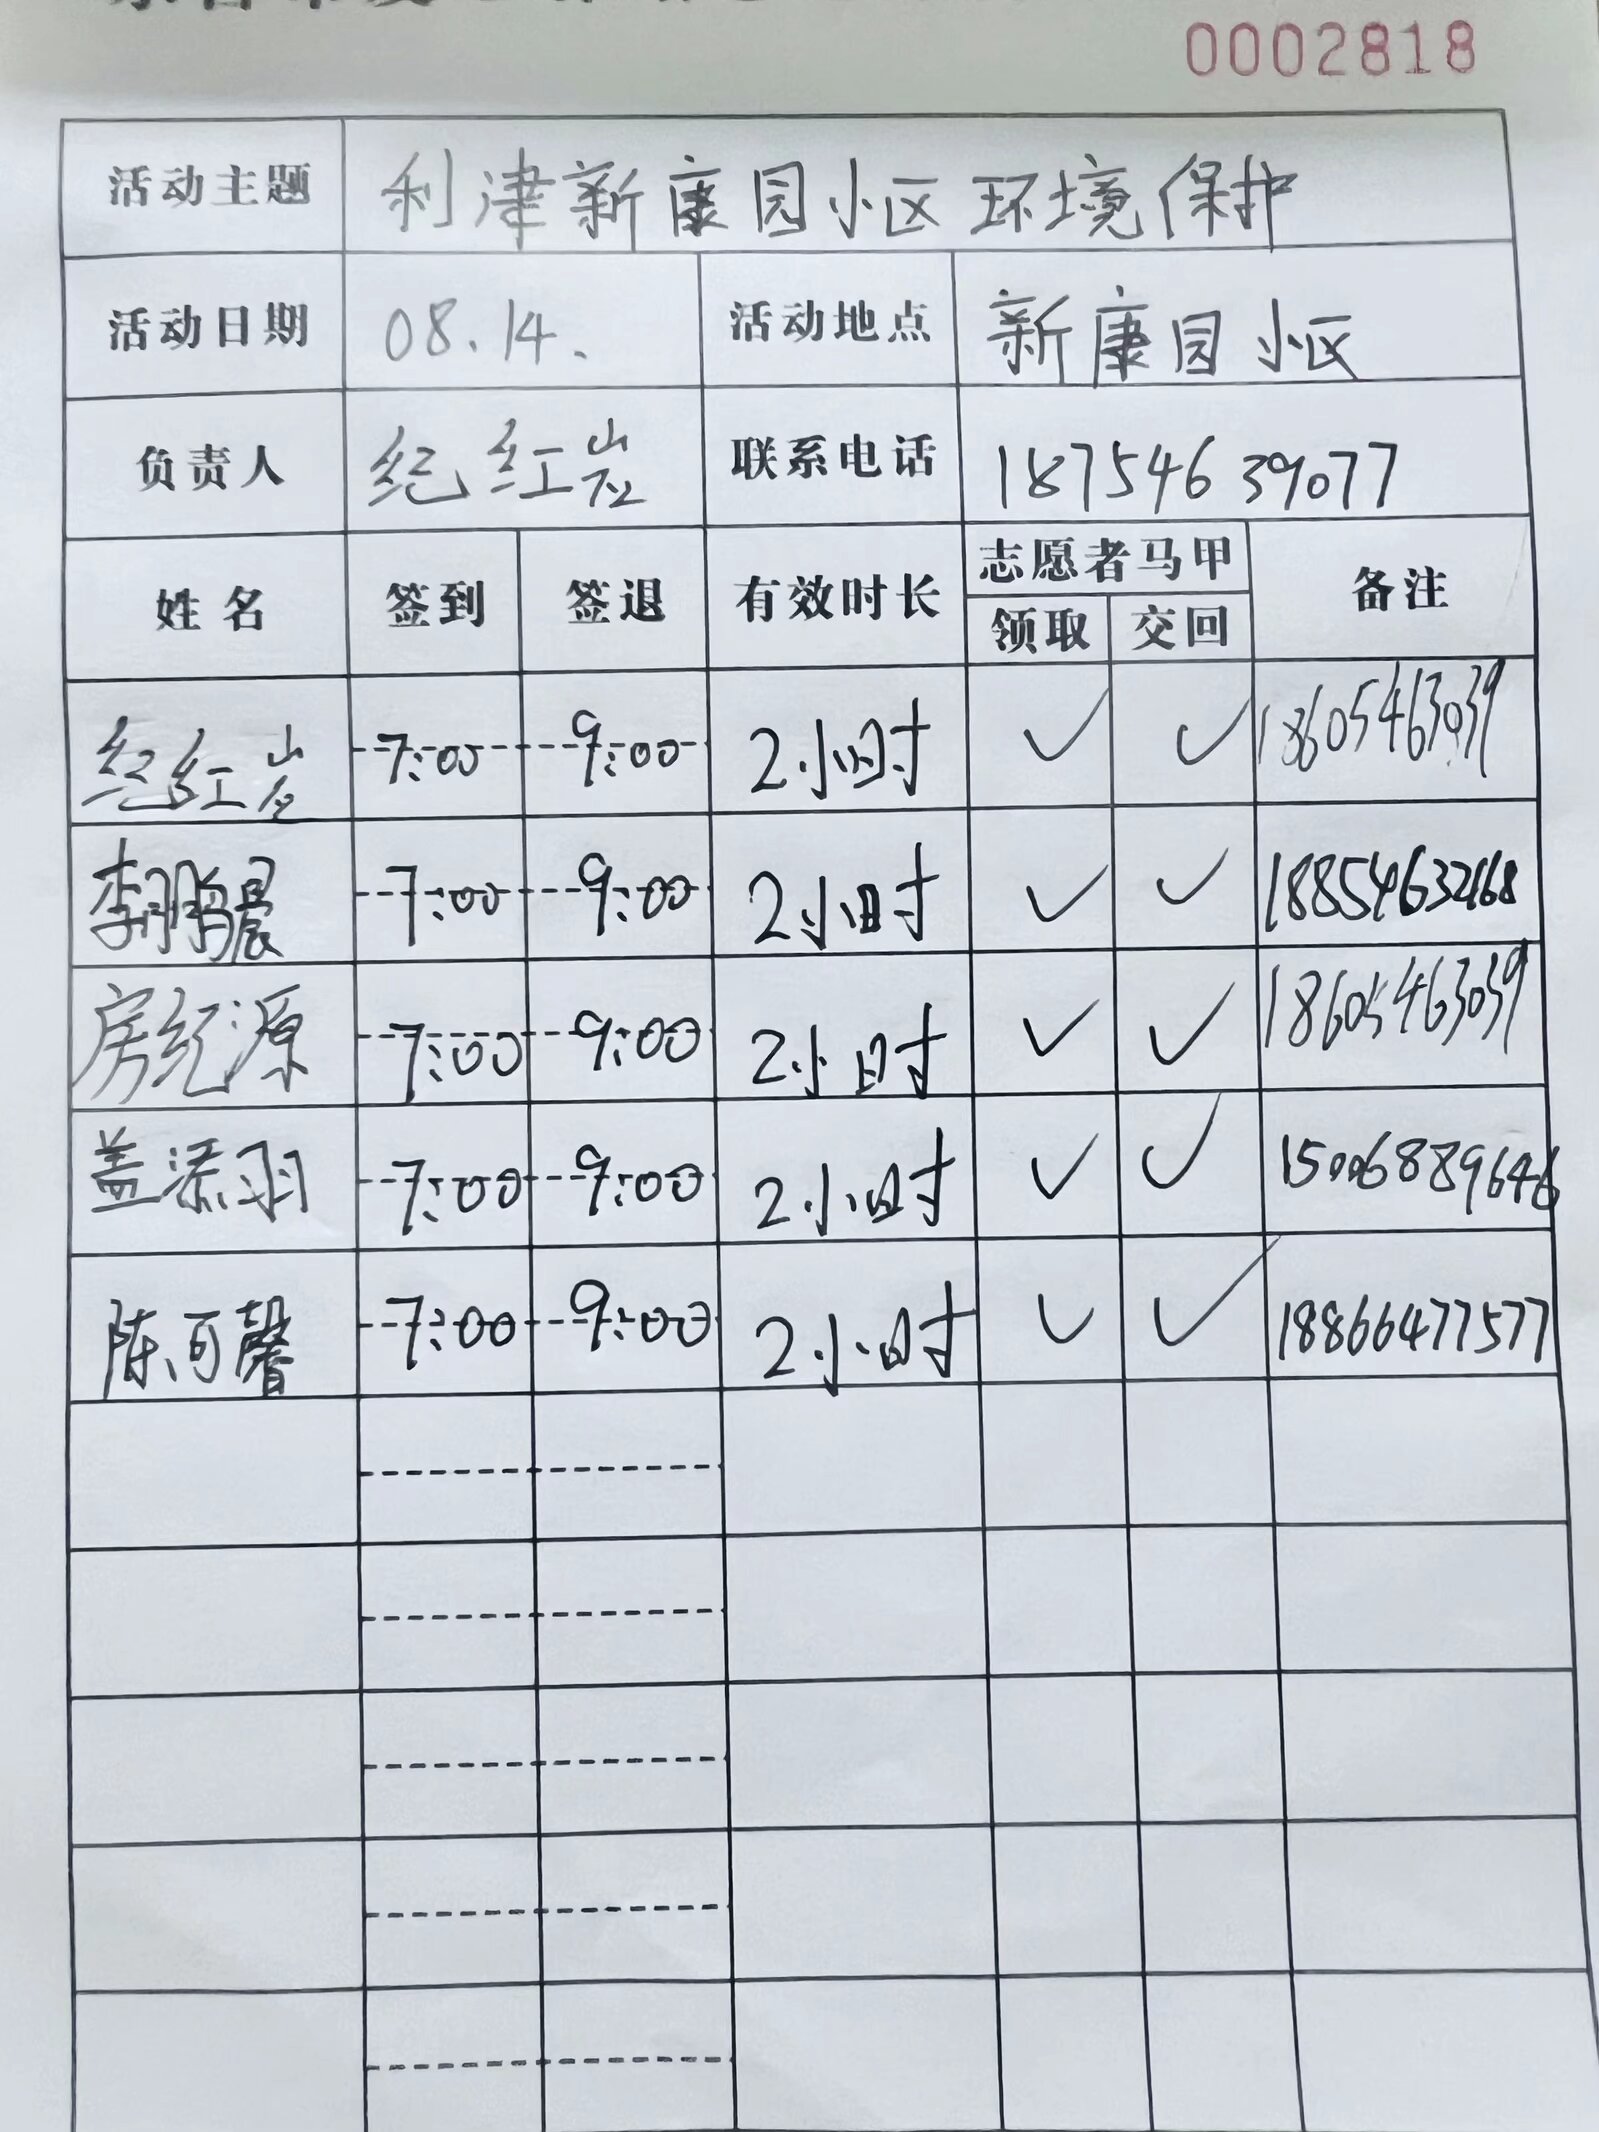 0002818
活动主题 利津新康园小区环境保护
活动日期 08.14. 活动地点 新康园小区
负责人 纪红岩 联系电话 18754639077
姓名 签到 签退 有效时长 志愿者马甲 备注
领取 交回
纪红岩 7:00 9:00 2小时 ✓ ✓ 18605463039
李鹏晨 7:00 9:00 2小时 ✓ ✓ 18854632168
房纪源 7:00 9:00 2小时 ✓ ✓ 18605463039
盖添羽 7:00 9:00 2小时 ✓ ✓ 15006889646
陈可馨 7:00 9:00 2小时 ✓ ✓ 18866477577